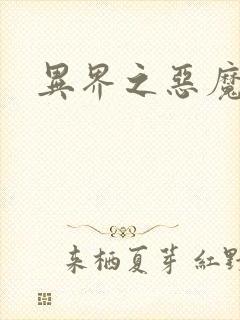 異界之惡魔
来栖夏芽 紅野